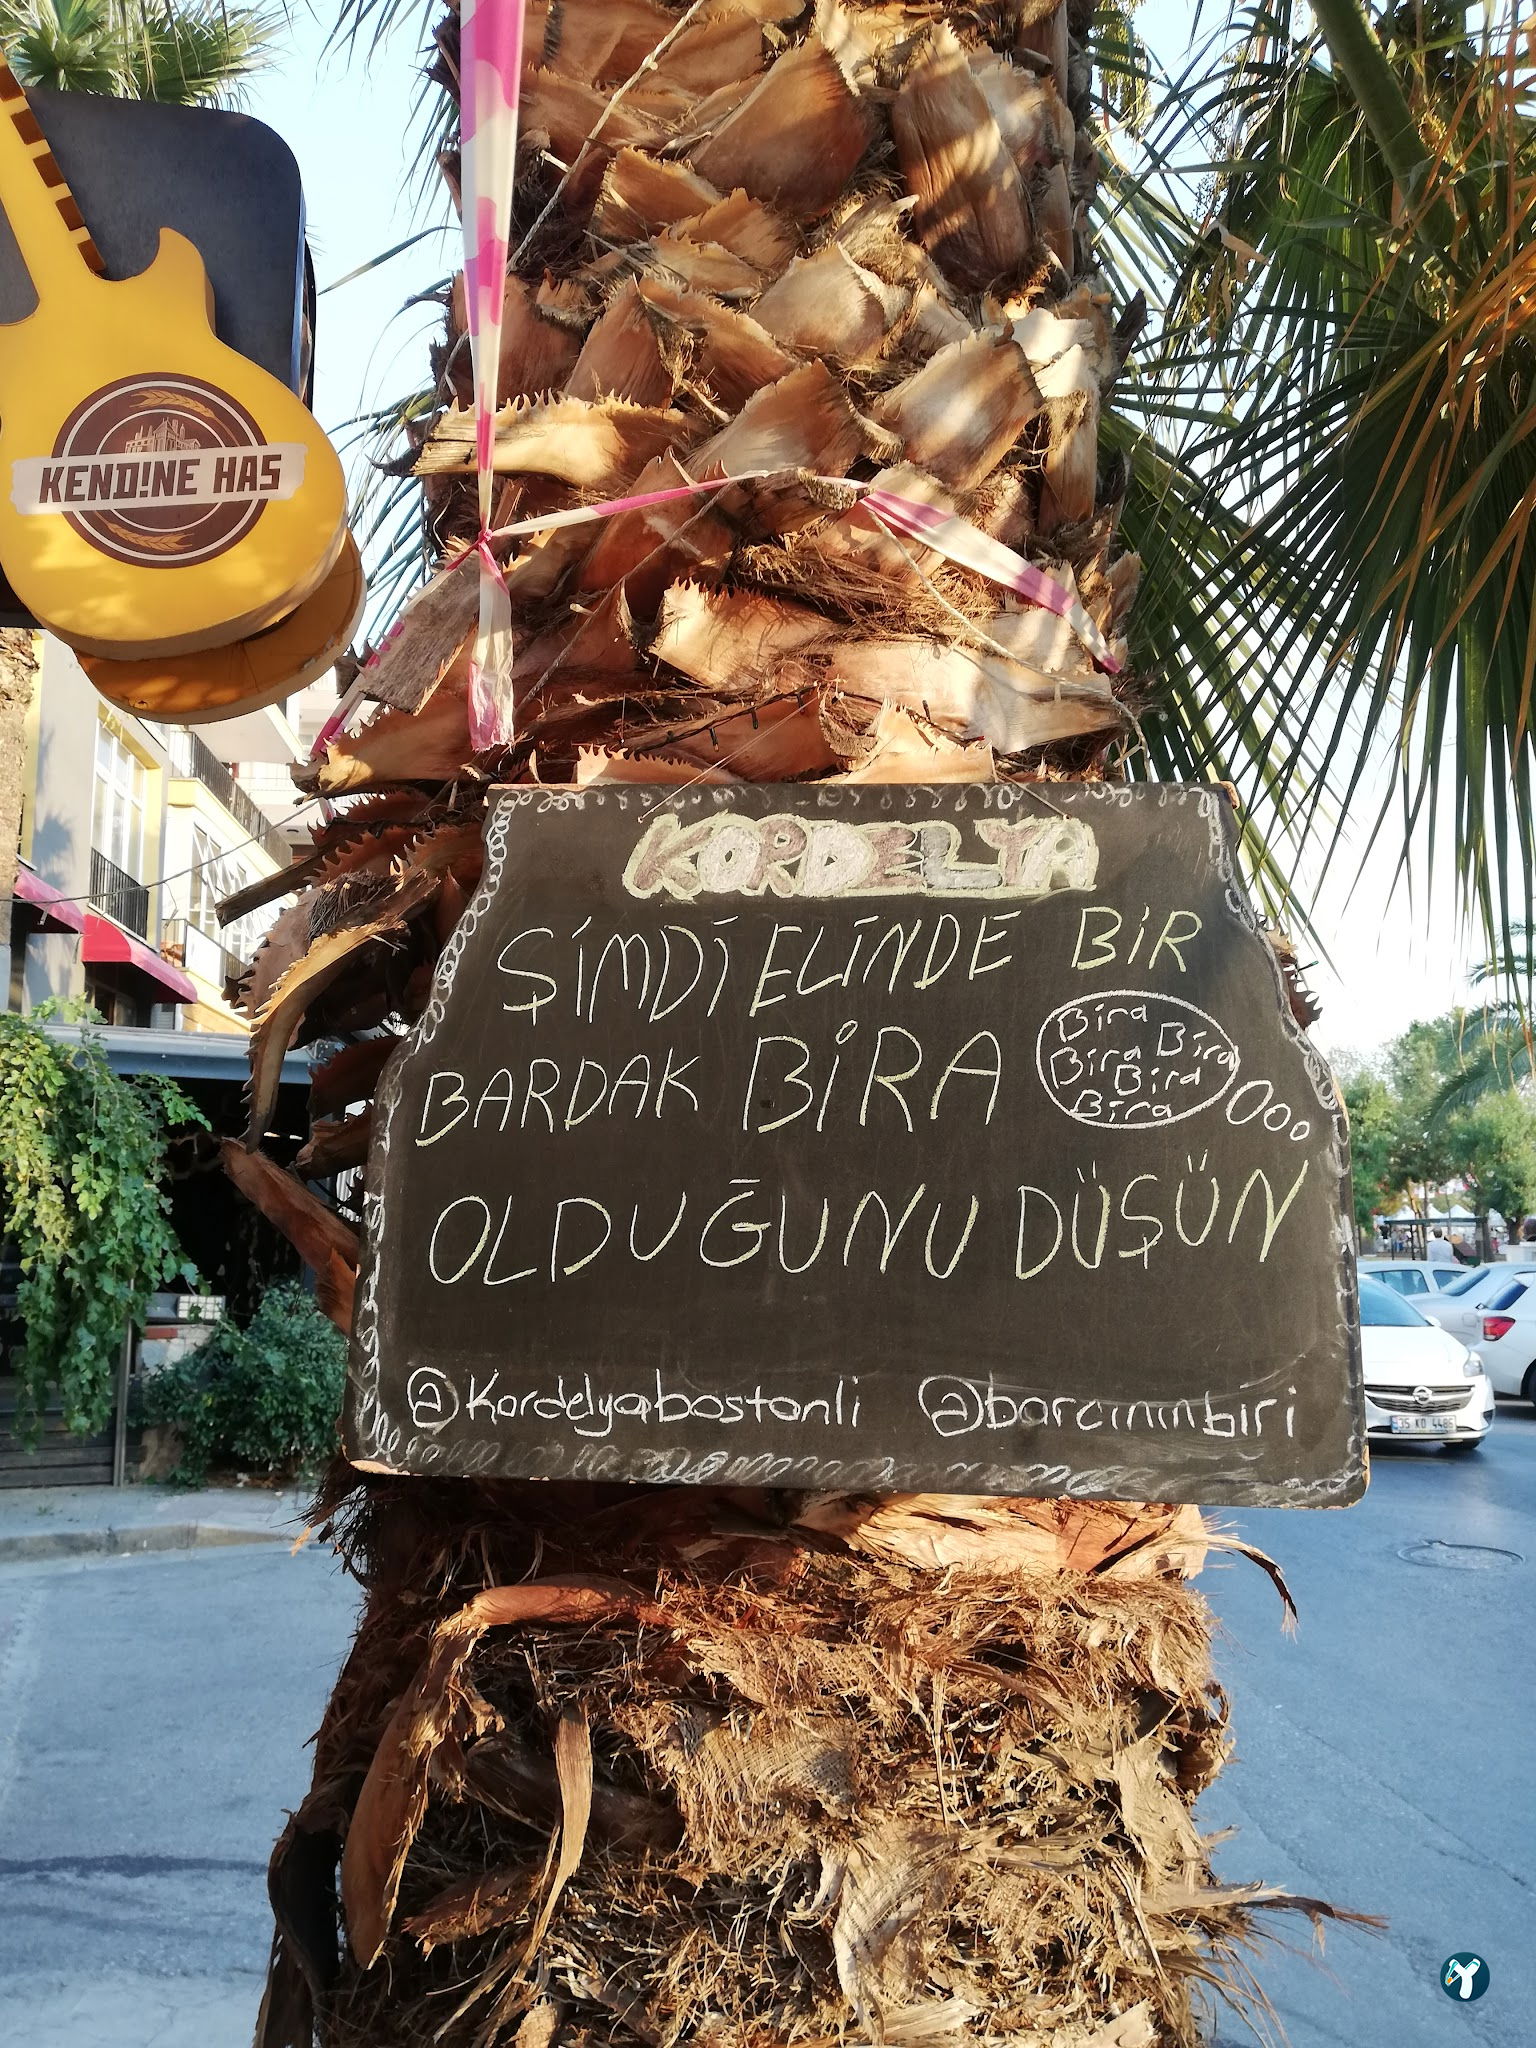 KEND!NE HAS
KORDELYA
ŞİMDİ ELİNDE BİR
BARDAK BİRA
Bira
Bira Bira
Bira
Bira
OLDUĞUNU DÜŞÜN
@kordelyabostanli @barcininbiri
35 KO 4485